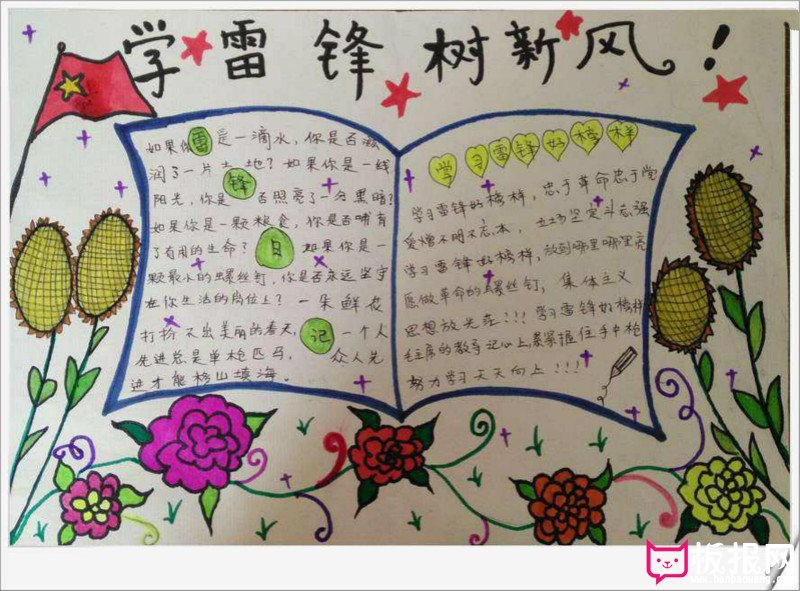 学雷锋树新风！
如果你雷是一滴水，你是否滋
润了一片土地？如果你是一线
阳光，你是锋否照亮了一分黑暗？
如果你是一颗粮食，你是否哺育
了有用的生命？日如果你是一
颗最小的螺丝钉，你是否永远坚守
在你生活的岗位上？一朵鲜花
打扮不出美丽的春天，记一个人
先进总是单枪匹马，众人先
进才能移山填海。
学习雷锋好榜样
学习雷锋好榜样，忠于革命忠于党
爱憎不明不忘本，立场坚定斗志强
学习雷锋好榜样，放到哪里哪里亮
愿做革命的螺丝钉，集体主义
思想放光芒！！！学习雷锋好榜样
毛主席的教导记心上，紧紧握住手中枪
努力学习天天向上！！！
板报网
www.banbaowang.com